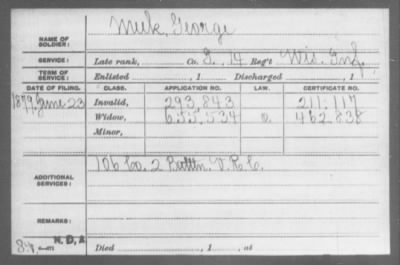 NAME OF SOLDIER: Meek, George
SERVICE: Late rank, Co. I, 14 Reg't Wis. Inf.
TERM OF SERVICE: Enlisted , 1 Discharged , 1
DATE OF FILING. CLASS. APPLICATION NO. LAW. CERTIFICATE NO.
1879, June 23 Invalid, 293,843 211,117
Widow, 655,534 o. 462,838
Minor,
ADDITIONAL SERVICES: 106 Co. 2 Battn. V.R.C.
REMARKS:
N.D.A
Died , 1 , at